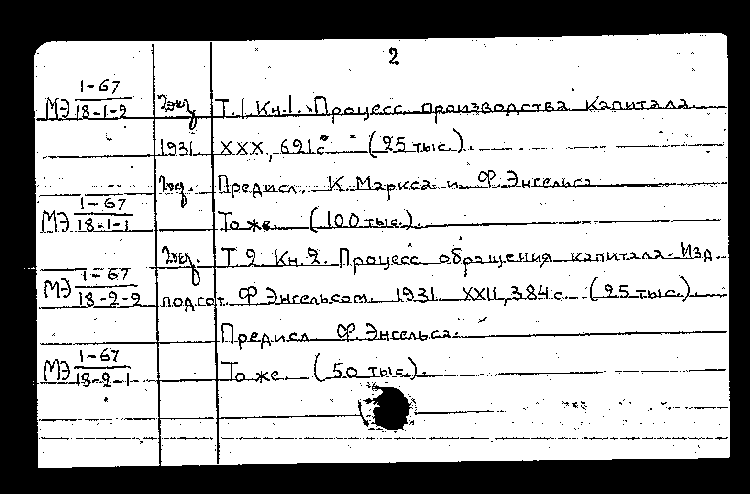 2
МЭ 1-67/18-1-2 Т.1 Кн.1. Процесс производства капитала.
1931. XXX, 621 с. (25 тыс.).
Предисл. К. Маркса и Ф. Энгельса
МЭ 1-67/18-1-1 То же. (100 тыс.).
Т 2. Кн. 2. Процесс обращения капитала. Изд.
МЭ 1-67/18-2-2 подгот. Ф. Энгельсом. 1931. XXII, 384 с. (25 тыс.).
Предисл. Ф. Энгельса.
МЭ 1-67/18-2-1 То же. (50 тыс.).